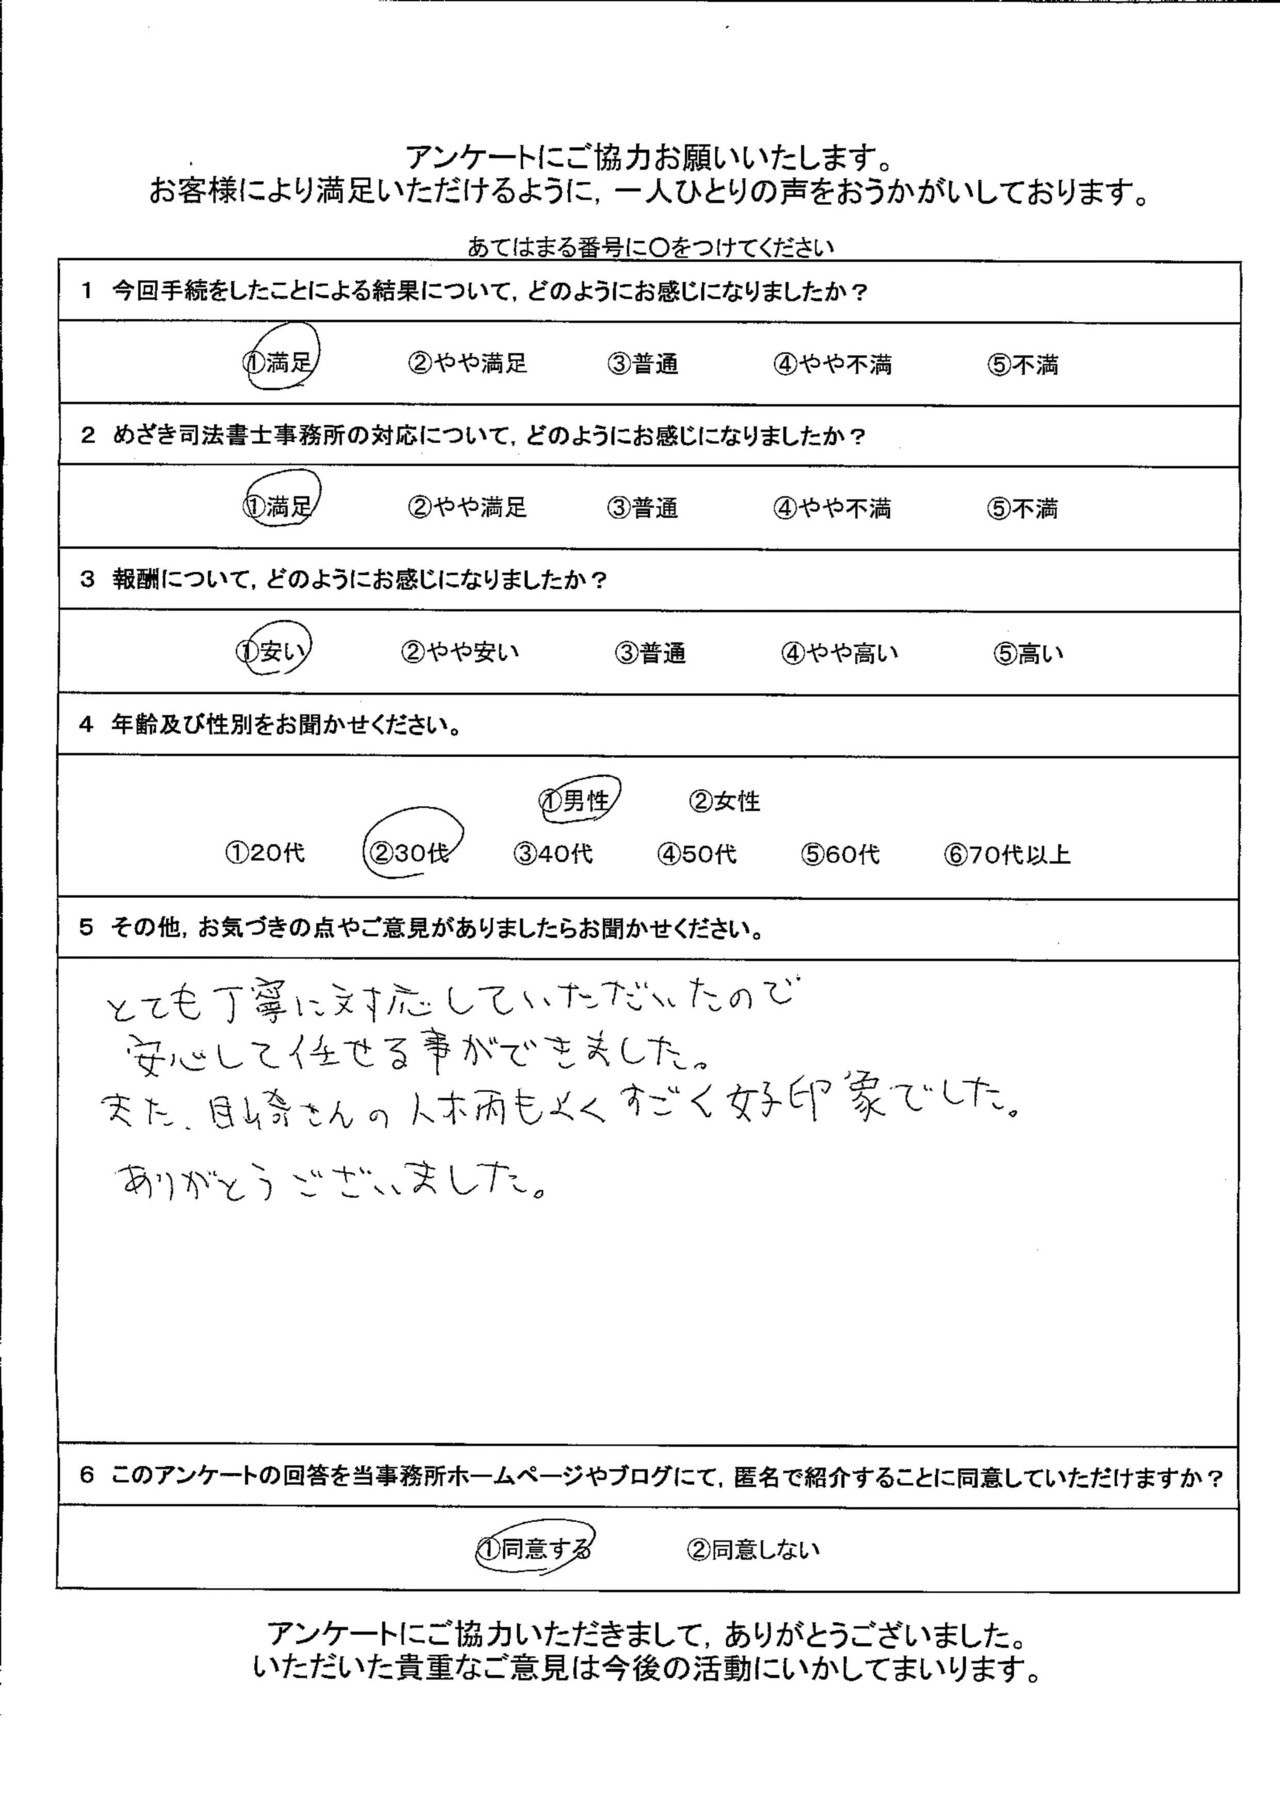 アンケートにご協力お願いいたします。
お客様により満足いただけるように，一人ひとりの声をおうかがいしております。
あてはまる番号に〇をつけてください
1 今回手続をしたことによる結果について，どのようにお感じになりましたか？
①満足 ②やや満足 ③普通 ④やや不満 ⑤不満
2 めざき司法書士事務所の対応について，どのようにお感じになりましたか？
①満足 ②やや満足 ③普通 ④やや不満 ⑤不満
3 報酬について，どのようにお感じになりましたか？
①安い ②やや安い ③普通 ④やや高い ⑤高い
4 年齢及び性別をお聞かせください。
①男性 ②女性
①20代 ②30代 ③40代 ④50代 ⑤60代 ⑥70代以上
5 その他，お気づきの点やご意見がありましたらお聞かせください。
とても丁寧に対応していただいたので
安心して任せる事ができました。
また、目崎さんの人柄もよくすごく好印象でした。
ありがとうございました。
6 このアンケートの回答を当事務所ホームページやブログにて，匿名で紹介することに同意していただけますか？
①同意する ②同意しない
アンケートにご協力いただきまして，ありがとうございました。
いただいた貴重なご意見は今後の活動にいかしてまいります。